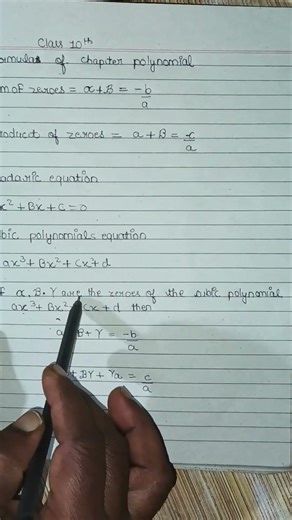 Class 10th
ormulas of chapter polynomial
m of zeroes = α+B = -b/a
roduct of zeroes = a+B = c/a
adaric equation
x² + Bx + C = 0
bic polynomials equation
ax³ + Bx² + Cx + d
f α, B, γ are the zeroes of the cubic polynomial
ax³ + Bx² Cx + d then
a B + γ = -b/a
+ Bγ + γa = c/a